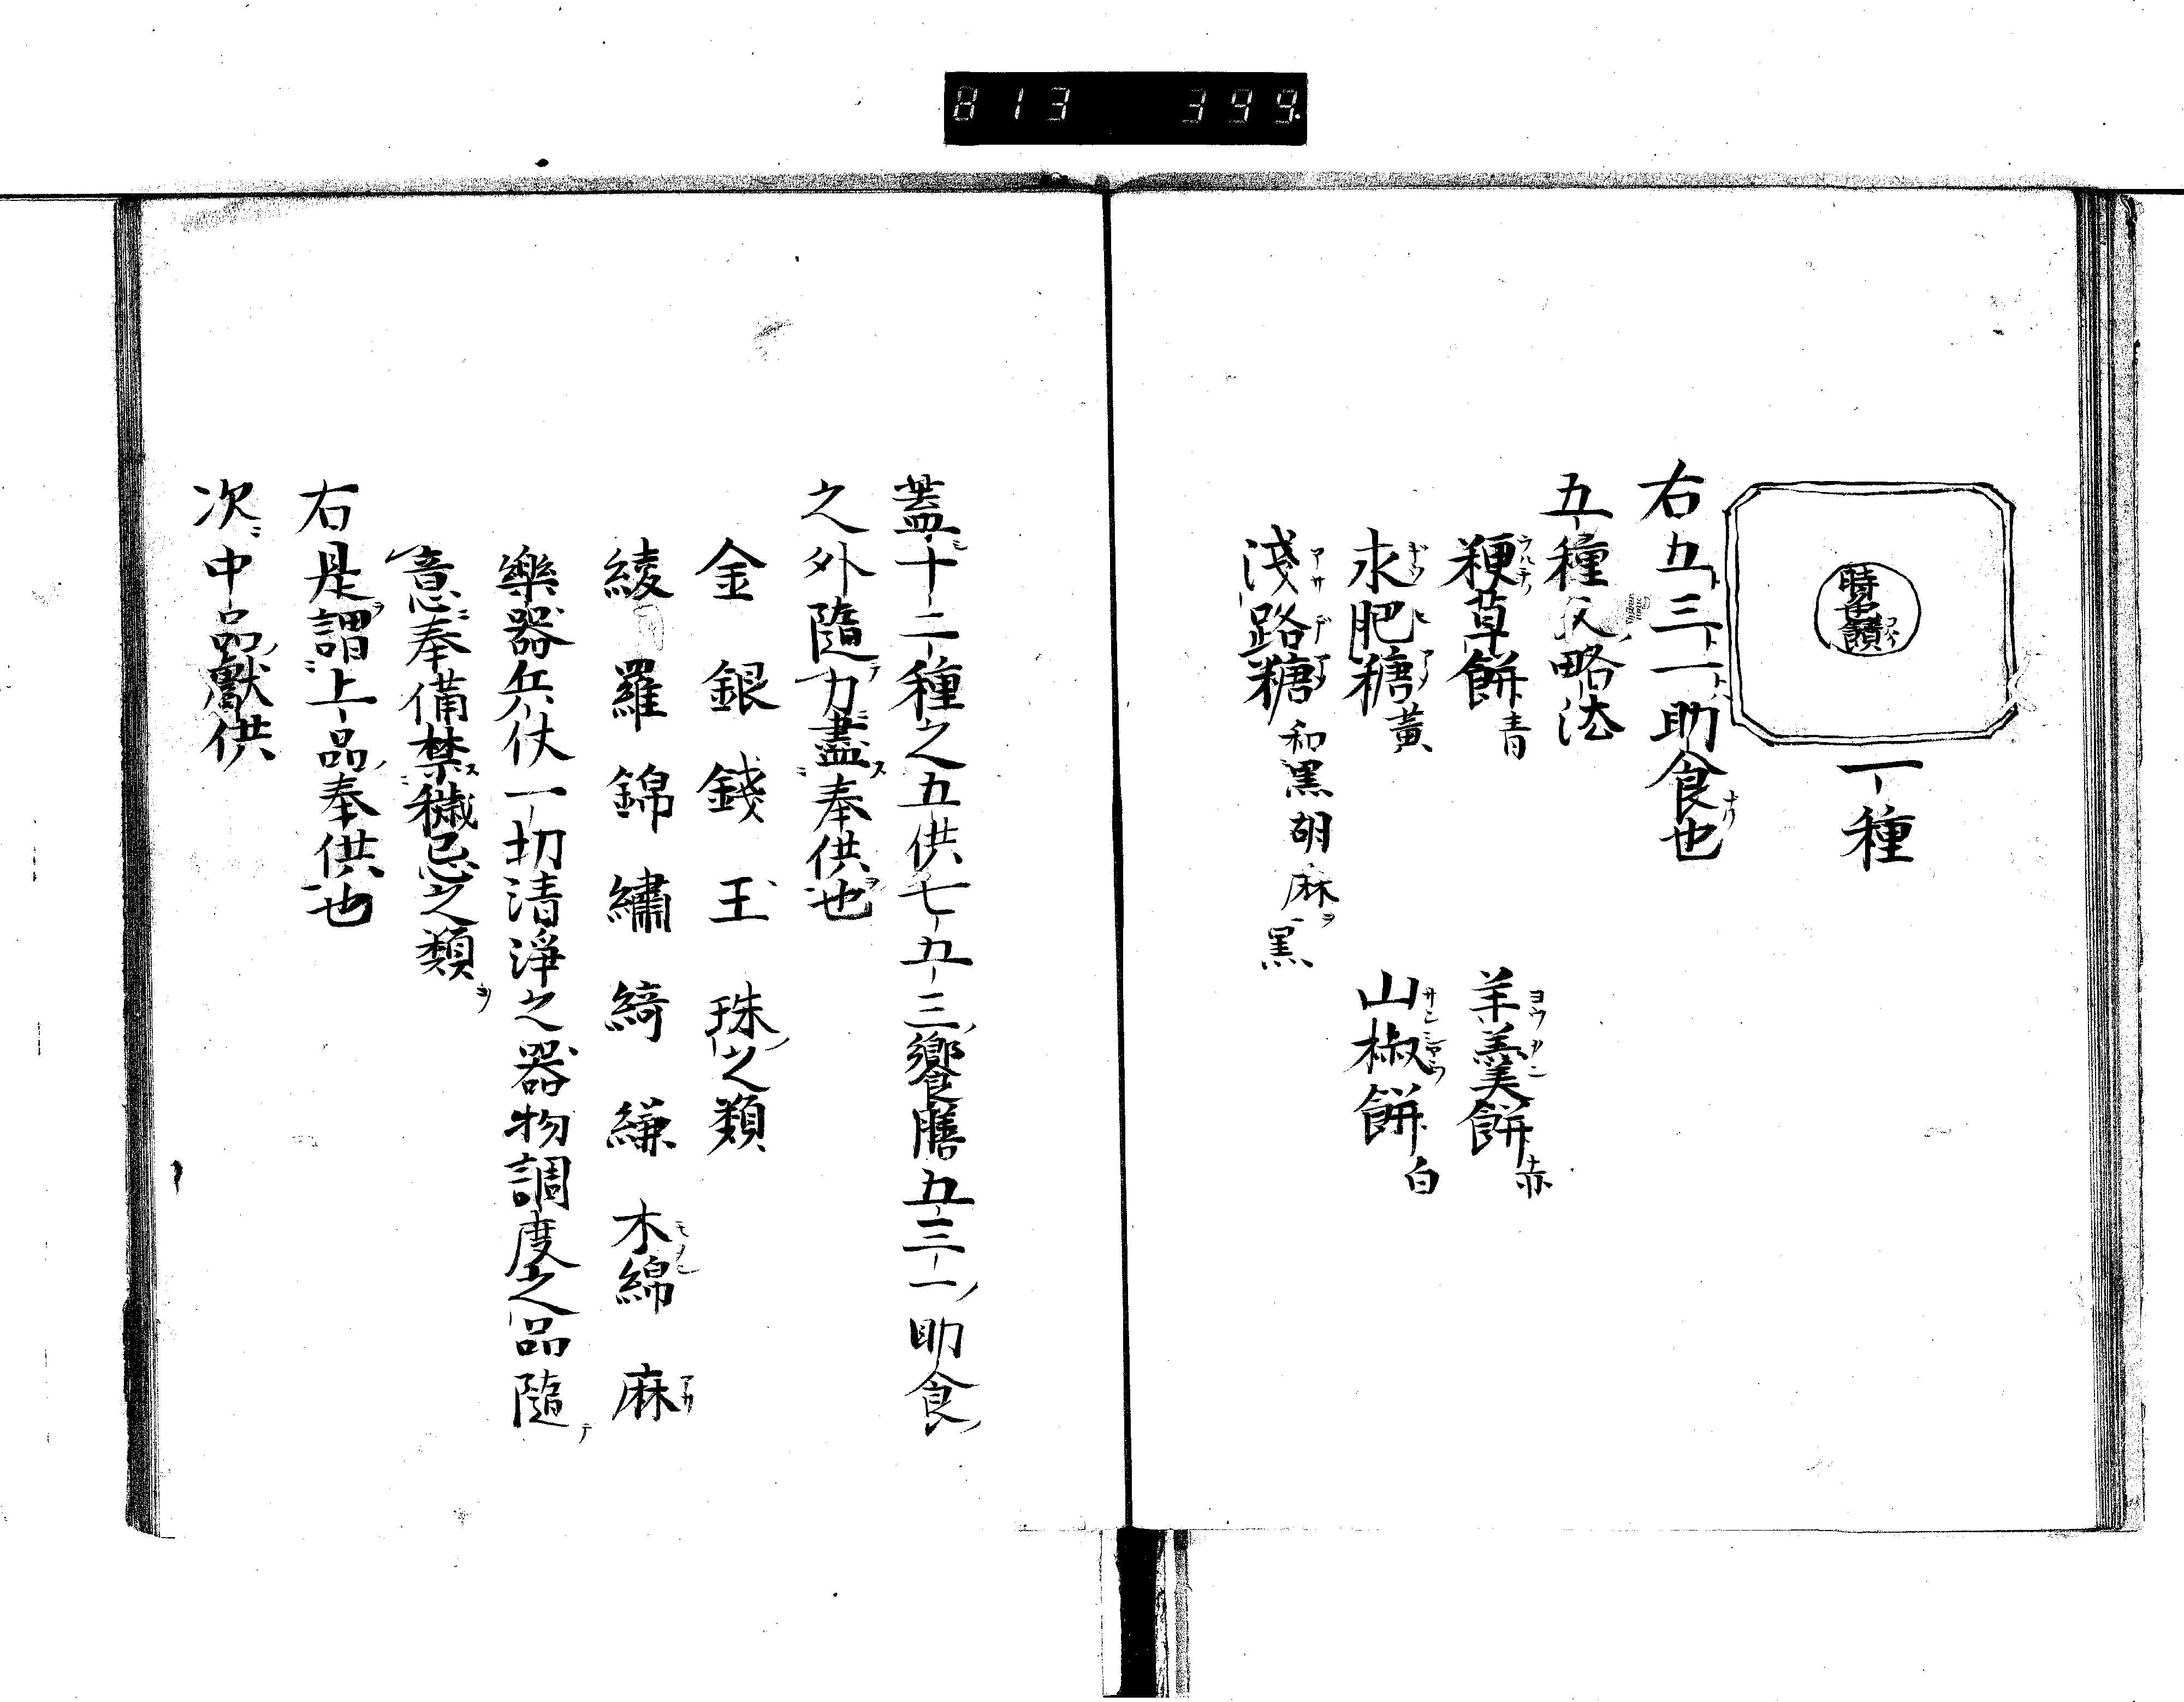 813 399
時色饋
一種
右五三一助食也
五種又略法
粳草餅青 羊羹餅赤
求肥糖黃 山椒餅白
淺路糖和黒胡麻ヲ黒
蓋十二種之五供七五三饗膳五三一助食
之外隨力盡奉供也
金銀錢玉珠之類
綾羅錦繡綺縑木綿麻
樂器兵仗一切清淨之器物調度之品隨
意奉備禁穢忌之類ヲ
右是謂上品奉供也
次中品獻供